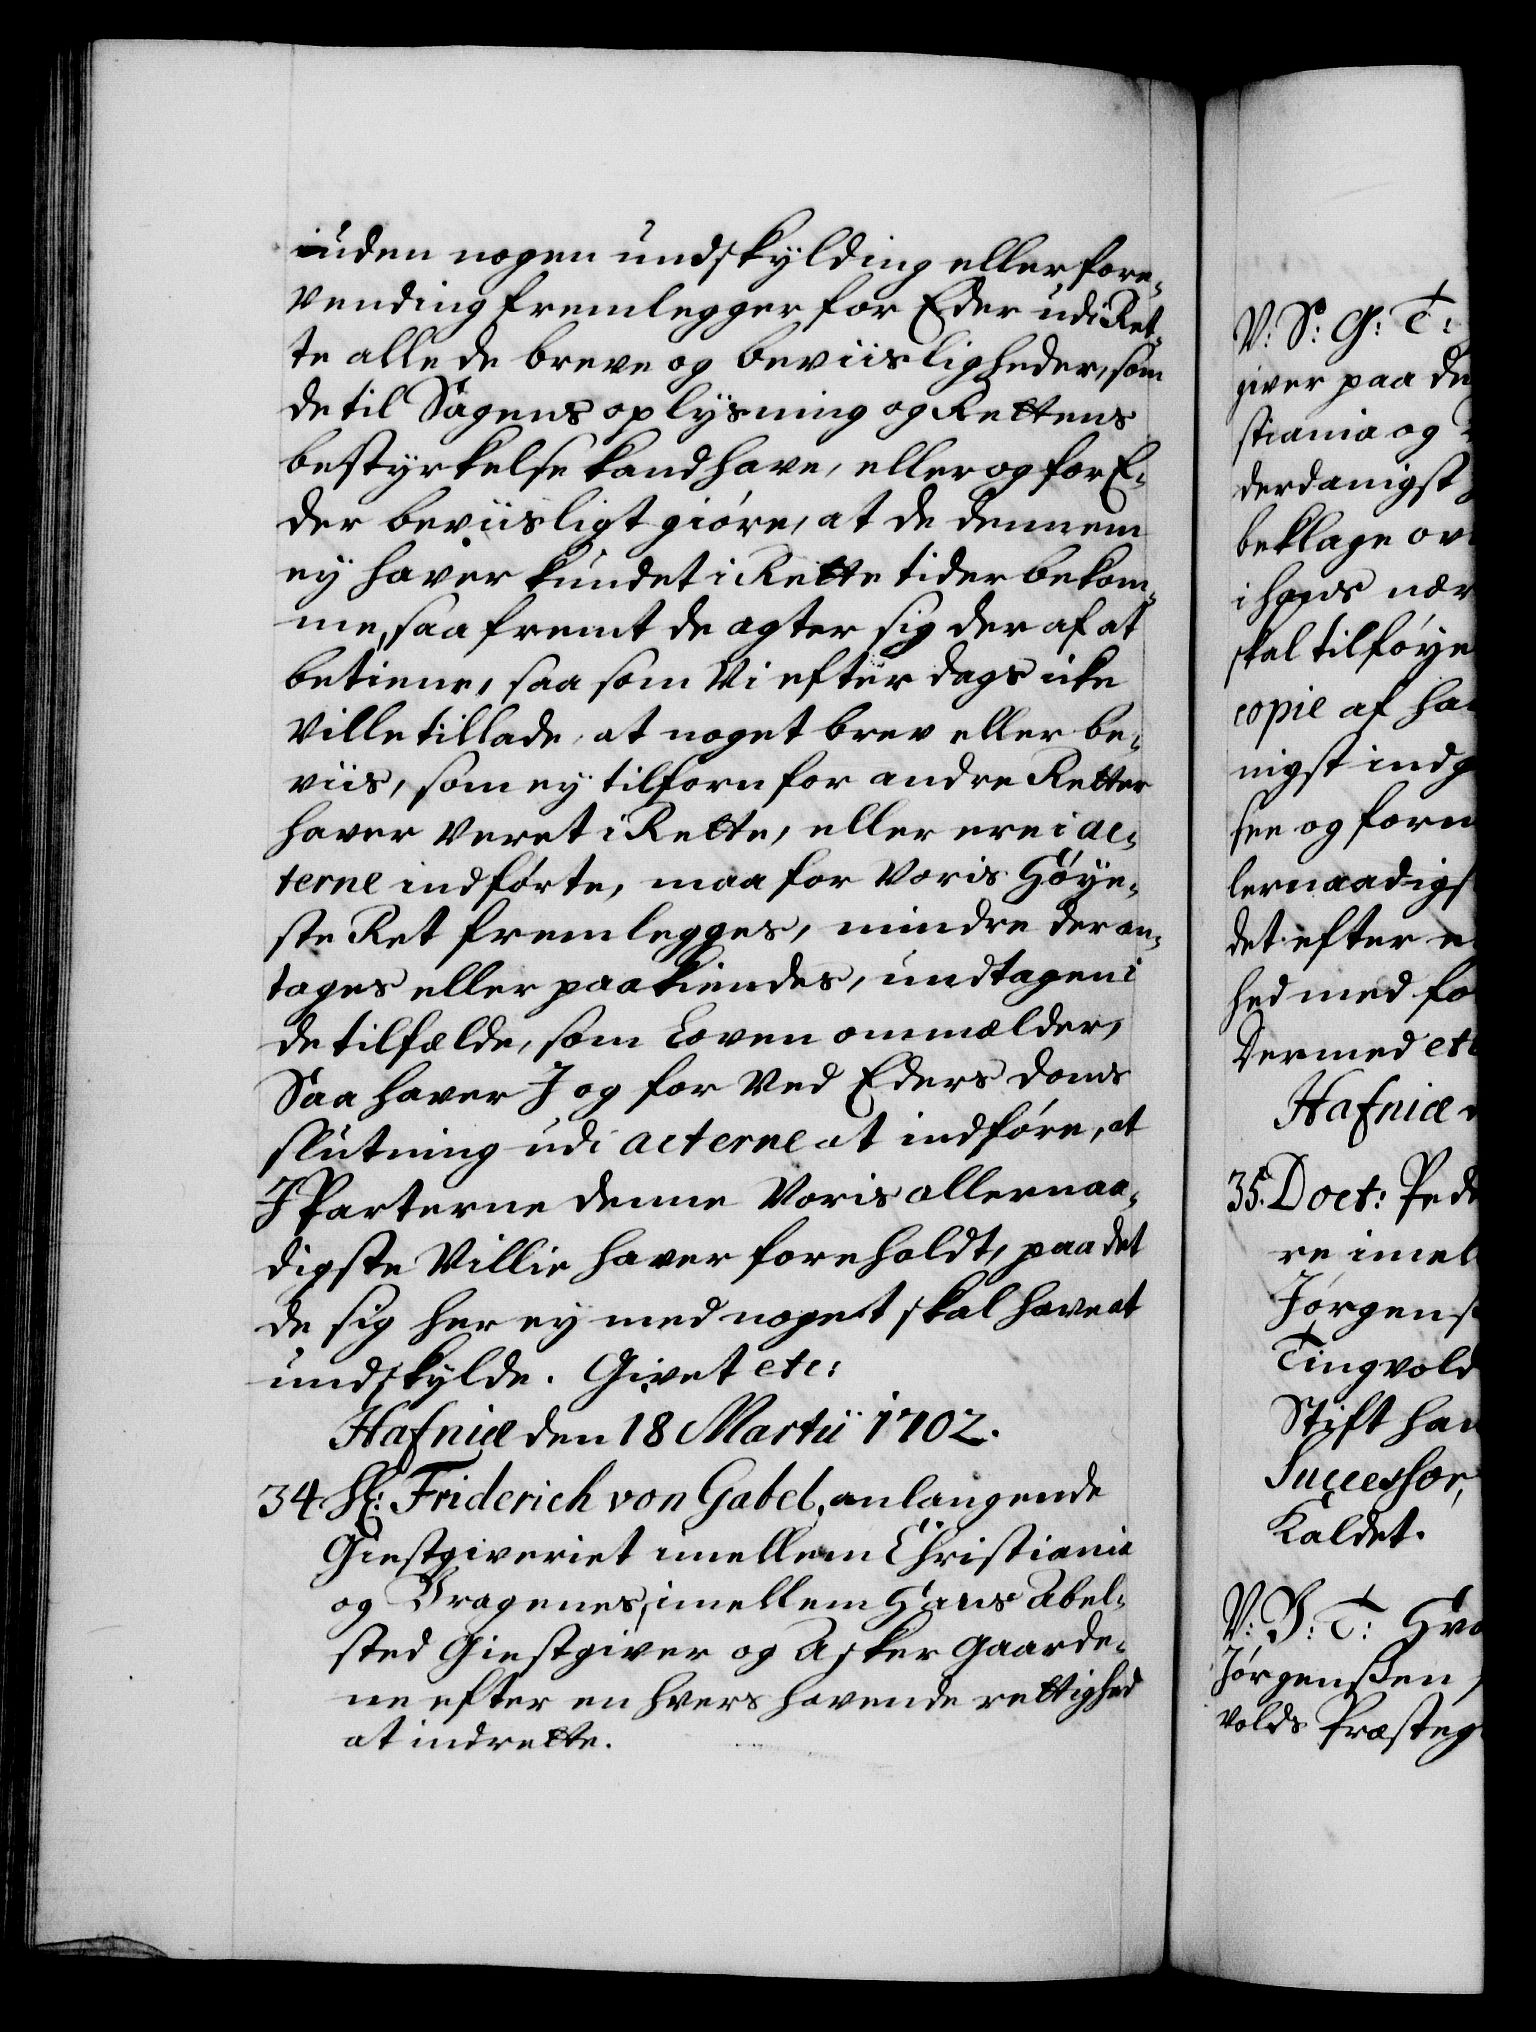 uden nogen undskylding eller fore-
vending fremlegger for Eder udi Ret-
te alle de breve og beviisligheder, som
de til Sagens oplysning og Rettens
bestyrkelse kand have, eller og for E-
der beviisligt giøre, at de dennem
ey haver kundet i Rette tider bekom-
me, saa fremt de agter sig der af at
betiene, saa som Vi efter dags icke
Ville tillade, at noget brev eller be-
viis, som ey tilforn for andre Retter
haver veret i Rette, eller ere i ac-
terne indførte, maa for Voris Høye-
ste Ret fremlegges, mindre der an-
tages eller paakiendes, undtagen i
de tilfælde, som Loven ommælder,
Saa haver I og for ved Eders doms
slutning udi acterne at indføre, at
I Parterne denne Voris allernaa-
digste Villie haver foreholdt, paa det
de sig her ey med noget skal have at
undskylde. Givet etc:
Hafniæ den 18 Martii 1702.
34. Hr: Friderich von Gabel, anlangende
Giestgiveriet imellem Christiania
og Bragenes, imellem Hans Abel-
sted Giestgiver og Asker Gaarde-
ne efter en hvers havende rettighed
at indrette.
V: S: G: T:
giver paa de
stiania og
derdanigst
beklage ov
i hans nær
skal tilføye
copie af ha
nigst indg
see og forn
lernaadigs
det efter e
hed med fo
Dermed etc
Hafniæ
35. Doct: Ped
re imel
Jørgens
Tingvold
Stift han
Successor,
Kaldet.
V: B: T: Hva
Jørgenssen
volds Præsteg